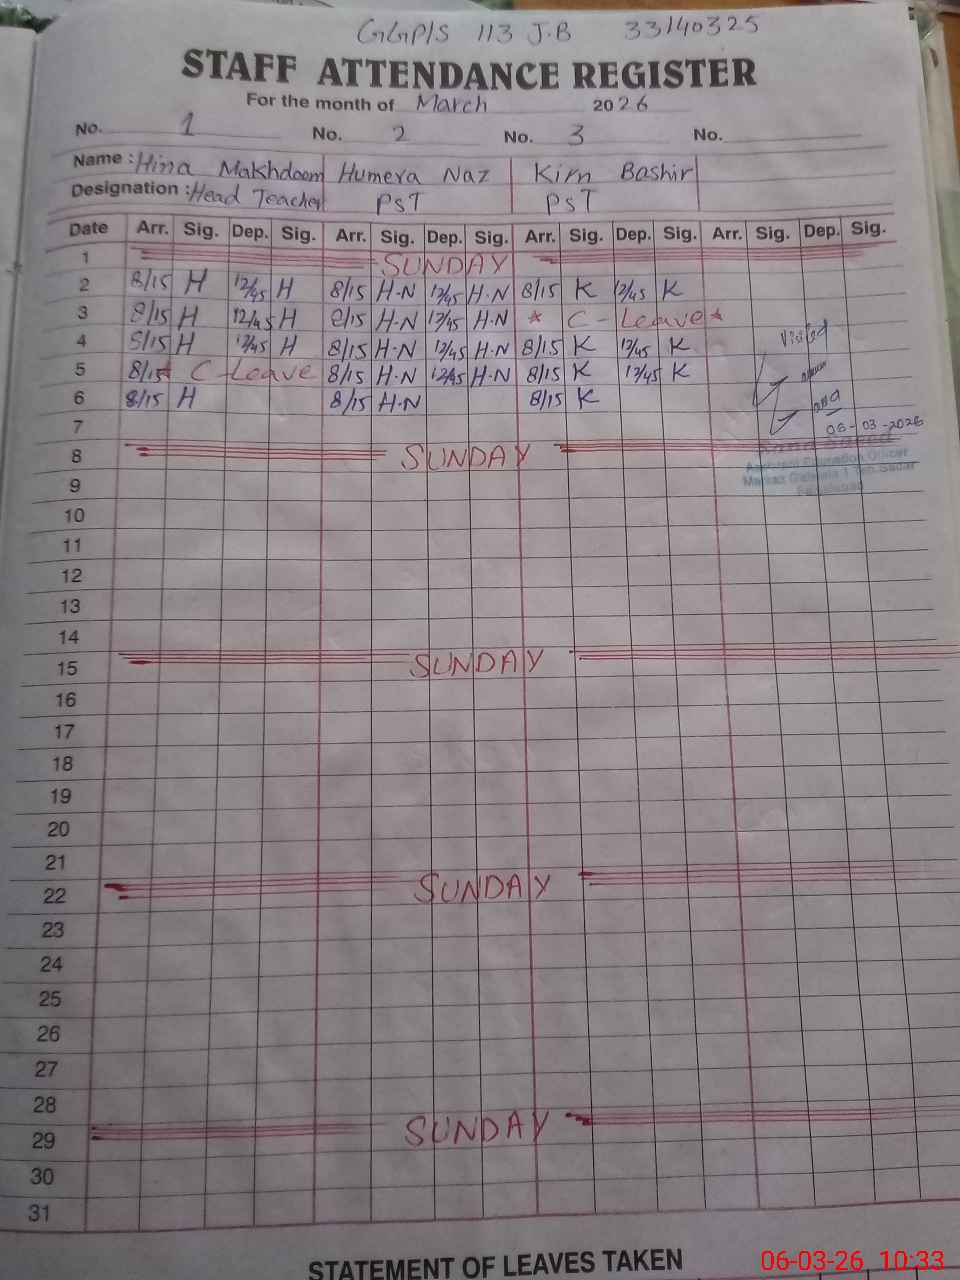 GGP/S 113 J.B 33140325
STAFF ATTENDANCE REGISTER
For the month of March 2026
No. 1 No. 2 No. 3 No.
Name : Hina Makhdoom Humera Naz Kirn Bashir
Designation : Head Teacher PST PST
Date Arr. Sig. Dep. Sig. Arr. Sig. Dep. Sig. Arr. Sig. Dep. Sig. Arr. Sig. Dep. Sig.
1 SUNDAY
2 8/15 H 12/45 H 8/15 H.N 12/45 H.N 8/15 K 12/45 K
3 8/15 H 12/45 H 8/15 H.N 12/45 H.N * C-Leave *
4 8/15 H 12/45 H 8/15 H.N 12/45 H.N 8/15 K 12/45 K Visited
5 8/15 C-Leave 8/15 H.N 12/45 H.N 8/15 K 12/45 K
6 8/15 H 8/15 H.N 8/15 K
7 06-03-2026
8 SUNDAY
Education Officer
9
10
11
12
13
14
15 SUNDAY
16
17
18
19
20
21
22 SUNDAY
23
24
25
26
27
28
29 SUNDAY
30
31
STATEMENT OF LEAVES TAKEN
06-03-26 10:33